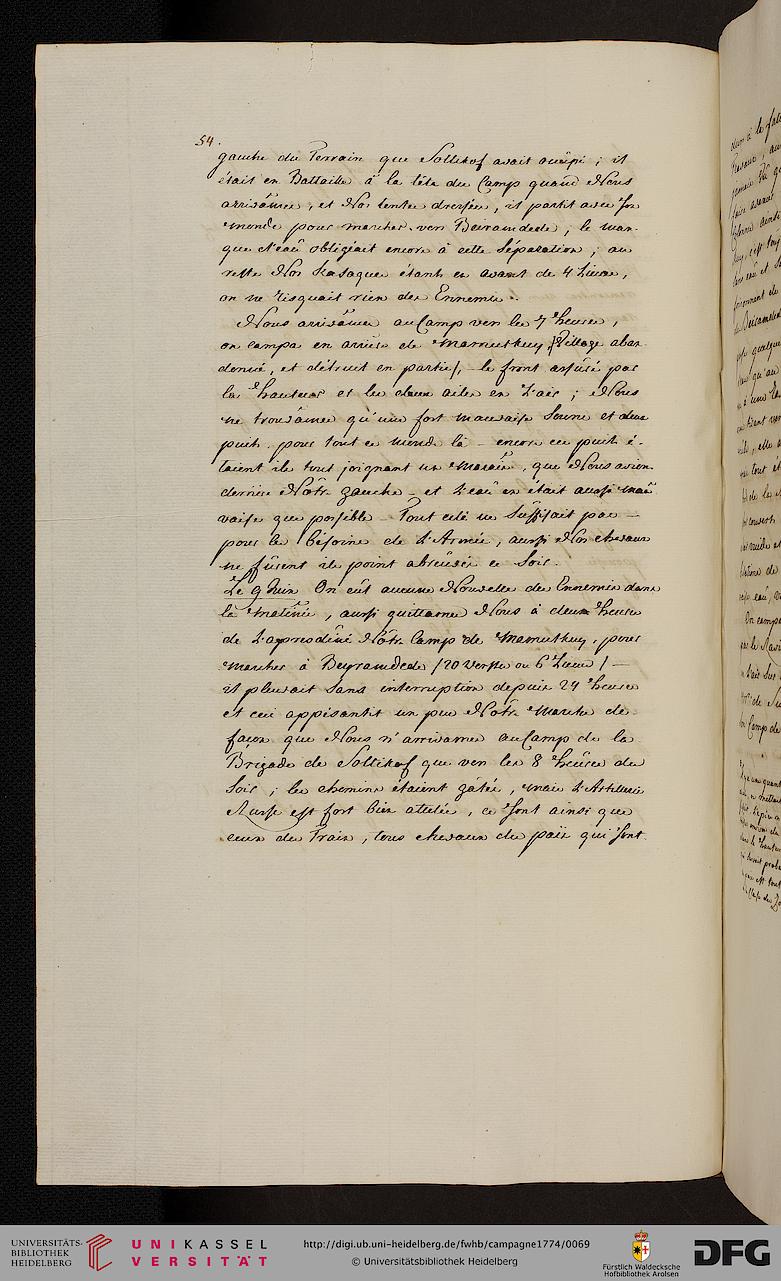 54.
gauche du Terrain que Soltikof avait occüpé ; il
était en Battaille à la tête du Camp quand Nous
arrivâmes, et Nos tentes dressées, il partit avec son
monde pour marcher vers Beiramdede ; le man-
que d'eau obligeait encore à cette séparation ; au
reste Nos Kasaques étants en avant de 4 Lieues,
on ne risquait rien des Ennemis.
Nous arrivâmes au Camp vers les 7 heures,
on campa en arriere de Mamutkuy /:Village aban-
donné, et détruit en partie/: le front assuré par
la hauteur et les deux ailes en l'air ; Nous
ne trouvâmes qu'une fort mauvaise Source et deux
puits pour tout ce monde là - encore ces puits é-
taient ils tout joignant un Marais, que Nous avions
derriere Nôtre gauche - et l'eau en était aussi mau
vaise que possible - Tout celà ne suffisait pas —
pour les bésoins de l'Armée, aussi Nos chevaux
ne fûrent ils point abreuvés ce Soir.
Le 9 Juin On eût aucune Nouvelle des Ennemis dans
la matinée, aussi quittames Nous à deux heures
de l'apresdiné Nôtre Camp de Mamutkuy, pour
marcher à Beyramdede /20 Verste ou 6 Lieues / —
il pleuvait sans interruption depuis 24 heures
et ceci appésantit un peu Nôtre Marche de
façon que Nous n'arrivames au Camp de la
Brigade de Soltikof que vers les 8 heures du
Soir ; les chemins étaient gâtés, mais l'Artillerie
Russe est fort bien attelée, ce sont ainsi que
ceux du Train, tous chevaux du païs qui sont
UNIVERSITÄTS-
BIBLIOTHEK
HEIDELBERG
UNIKASSEL
VERSITÄT
http://digi.ub.uni-heidelberg.de/fwhb/campagne1774/0069
© Universitätsbibliothek Heidelberg
Fürstlich Waldecksche
Hofbibliothek Arolsen
DFG